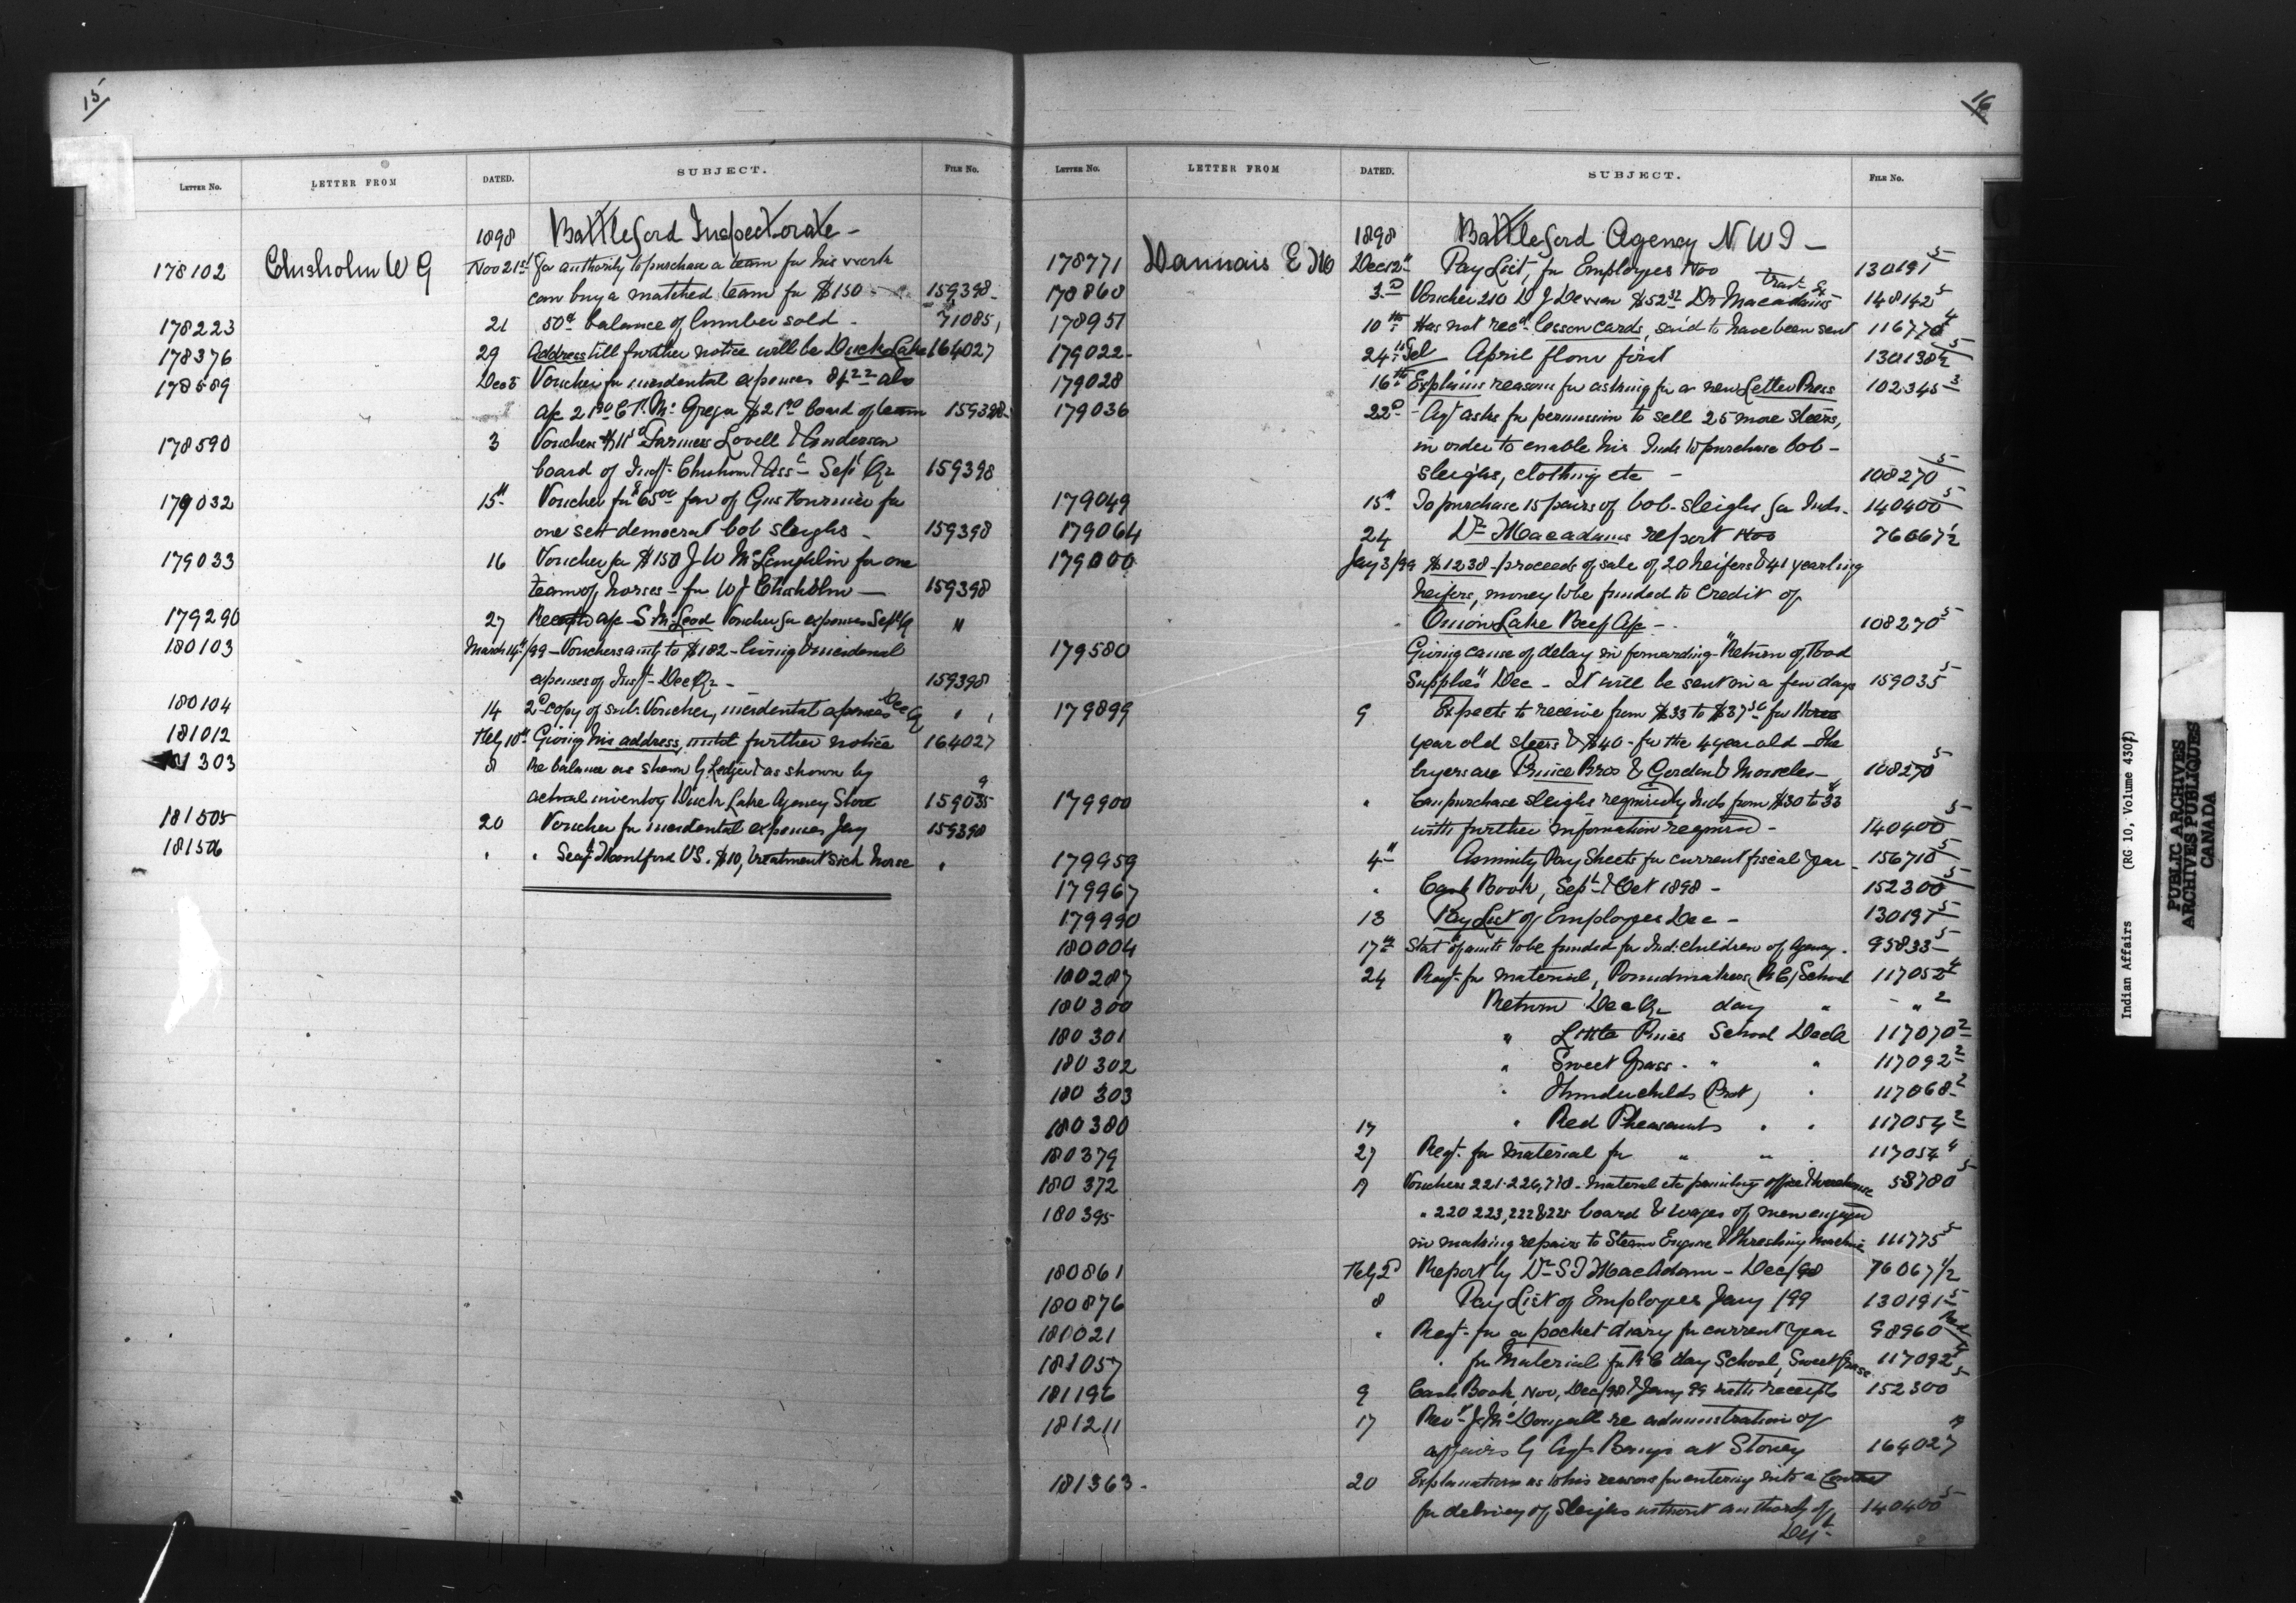 15
LETTER No. LETTER FROM DATED. SUBJECT. FILE No.
1898 Battleford Inspectorate -
178102 Chisholm W G Nov 21st for authority to purchase a team for his work
can buy a matched team for $150 - 159398-
178223 21 50¢ balance of lumber sold - 71085
178376 29 Address till further notice will be Duck Lake 164027
178589 Dec 5 Voucher for incidental expenses also
a/c board of team 159398
178590 3 Vouchers Farmers Lovell & Anderson
board of Insp. Chisholm & Asst Sept Qr 159398
179032 15th Voucher for $65.00 fav of Gus Fournier for
one sett democrat bob sleighs - 159398
179033 16 Voucher for $150 J W McLaughlin for one
team of horses - for W J Chisholm - 159398
179290 27 a/c S McLeod Voucher for expenses Sept Q "
180103 March 14th/99 - Vouchers amtg to $182 - living & incidental
expenses of Insp. Dec Qr - 159398
180104 14 2d copy of sub. Voucher, incidental expenses Dec Q " "
181012 Feby 10th Giving his address, until further notice 164027
181303 8 Re balance as shown by Ledger & as shown by
actual inventory Duck Lake Agency Store 159035 9
181505 20 Voucher for incidental expenses Jany 159398
181506 " " VS. $10, treatment sick horse "
16
LETTER No. LETTER FROM DATED. SUBJECT. FILE No.
1898 Battleford Agency N W T -
178771 Daunais E Mo Dec 12th Pay List, for Employees Nov 130191 5
178860 3D Voucher 210 D J $52 Dr Macadams 148142 5
178951 10th Has not recd lesson cards, said to have been sent 116770 4
179022- 24th Tel April flour first 130138 5
179028 16th Explains reasons for asking for a new Letter Press 102345 3
179036 22D - Agt asks for permission to sell 25 more steers,
in order to enable his Inds to purchase bob -
sleighs, clothing etc - 108270 5
179049 15th To purchase 15 pairs of bob-sleighs for Inds. 140400 5
179064 24 Dr Macadams report Nov 76067½
179000 Jany 3/99 $1238 - proceeds of sale of 20 heifers & 41 yearling
heifers, money to be funded to Credit of
Onion Lake Beef a/c -. 108270 5
179580 Giving cause of delay in forwarding "Return of Food
Supplies" Dec - It will be sent in a few days 159035 5
179899 9 Expects to receive from $33 to $37.50 for three
year old steers & $40 - for the 4 year old - the
buyers are Prince Bros & Gordon & 108270 5
179900 " Can purchase sleighs required by Inds from $30 to 33
with further information required - 140400 5
179959 4th Annuity Pay Sheets for current fiscal year - 156710 5
179967 " Cash Book, Sept & Oct 1898 - 152300 5
179990 13 Pay List of Employees Dec - 130191 5
180004 17th Statt of amts to be funded for Ind. children of Agency. 95833 5
180287 24 Reqt. for material, Poundmakers (R C) School 117052 4
180300 Return Dec Qr day " - " 2
180301 " Little Pines School Dec Q 117070 2
180302 " Sweet Grass. " " 117092 2
180303 " Thunderchilds (Prot) " 117068 2
180380 17 " Red Pheasants " " 117054 2
180379 27 Reqt. for material for " " 117054 4
180372 Vouchers 221-226, - material etc painting office & warehouse 58780 5
180395 " 220 223, 222 & 225 board & wages of men engaged
in making repairs to Steam Engine & threshing machine 111775 5
180861 Feby 2D Report by Dr S T MacAdam - Dec/98 76067 1/2
180876 8 Pay List of Employees Jany /99 130191 5
181021 " Reqt. for a pocket diary for current year 98960
181057 " for Material for R C day School, Sweet Grass 117092 4
181196 9 Cash Book, Nov, Dec/98 & Jany 99 with receipts 152300 5
181211 17 Revd J. McDougall re administration of
affairs by Agt. at Stoney 164027
181363. 20 Explanation as to his reasons for entering into a Contract
for delivery of sleighs without authority of 140400 5
Dept.
Indian Affairs (RG 10, Volume 4307)
PUBLIC ARCHIVES
ARCHIVES PUBLIQUES
CANADA